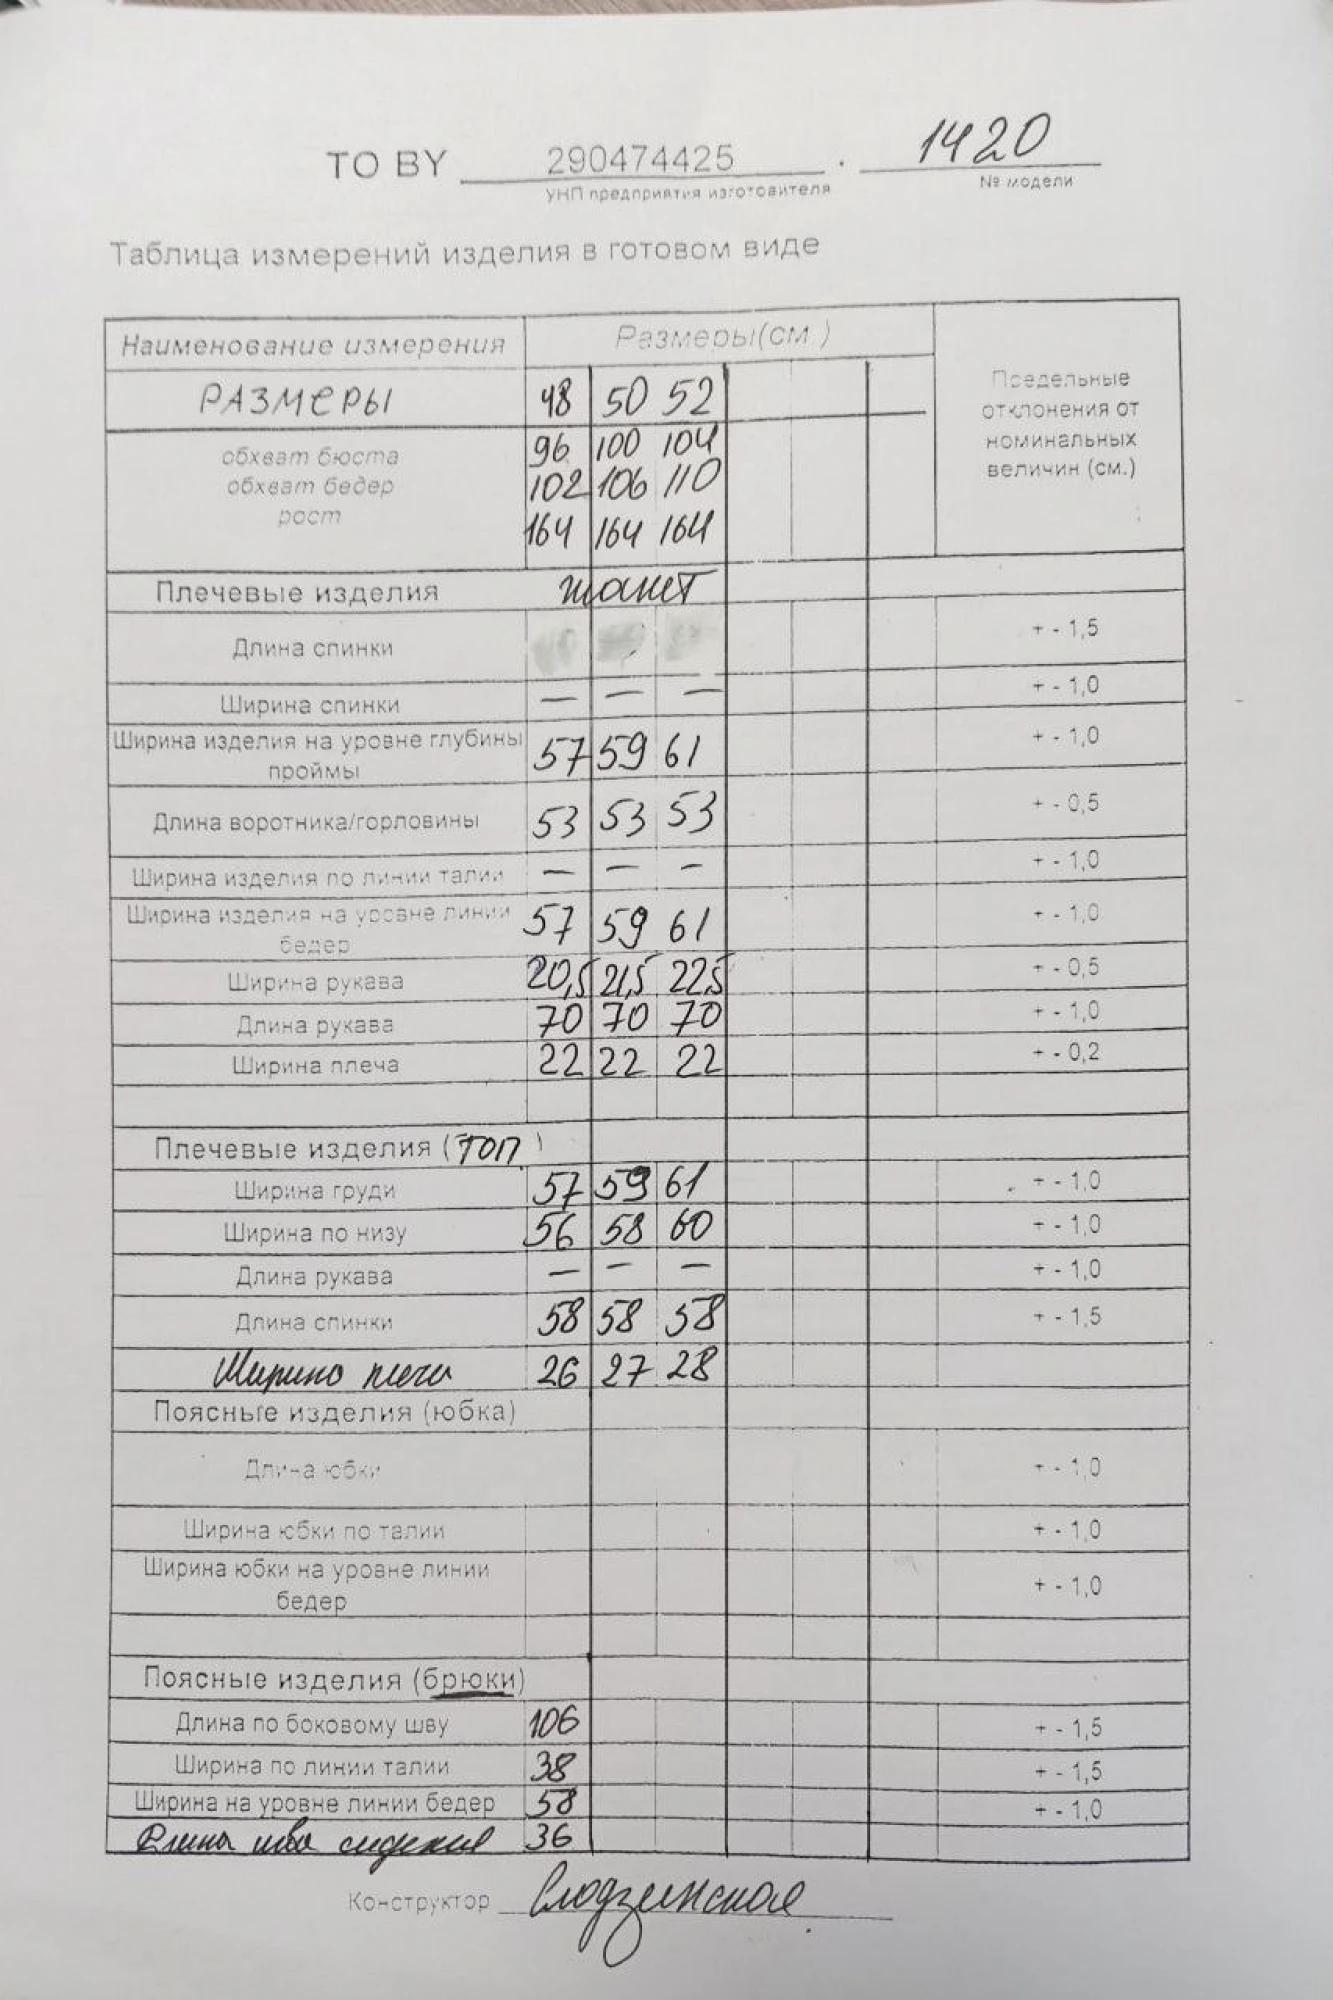 ТО BY 290474425 . 1420
УНП предприятия изготовителя № модели
Таблица измерений изделия в готовом виде
Наименование измерения Размеры(см.) Предельные отклонения от номинальных величин (см.)
РАЗМЕРЫ 48 50 52
обхват бюста 96 100 104
обхват бедер 102 106 110
рост 164 164 164
Плечевые изделия жакет
Длина спинки + - 1,5
Ширина спинки — — — + - 1,0
Ширина изделия на уровне глубины
проймы 57 59 61 + - 1,0
Длина воротника/горловины 53 53 53 + - 0,5
Ширина изделия по линии талии — — — + - 1,0
Ширина изделия на уровне линии
бедер 57 59 61 + - 1,0
Ширина рукава 20,5 21,5 22,5 + - 0,5
Длина рукава 70 70 70 + - 1,0
Ширина плеча 22 22 22 + - 0,2
Плечевые изделия (ТОП)
Ширина груди 57 59 61 + - 1,0
Ширина по низу 56 58 60 + - 1,0
Длина рукава — — — + - 1,0
Длина спинки 58 58 58 + - 1,5
Ширина плеча 26 27 28
Поясные изделия (юбка)
Длина юбки + - 1,0
Ширина юбки по талии + - 1,0
Ширина юбки на уровне линии
бедер + - 1,0
Поясные изделия (брюки)
Длина по боковому шву 106 + - 1,5
Ширина по линии талии 38 + - 1,5
Ширина на уровне линии бедер 58 + - 1,0
Длина шва сидения 36
Конструктор Слодзинская